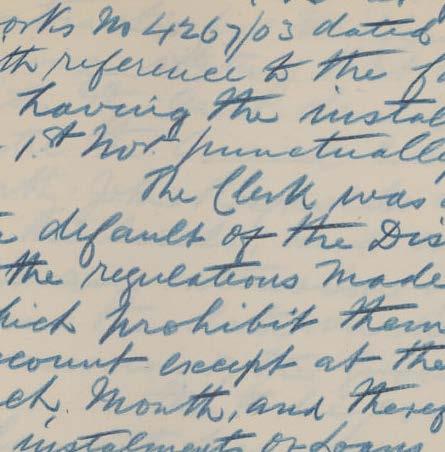 orks No 4267/03 dated
th reference to the f
having the instal
1st Novr punctually
The Clerk was
default of the Dis
the regulations made
hich prohibit them
ccount except at the
ch Month, and theref
instalments or Loans